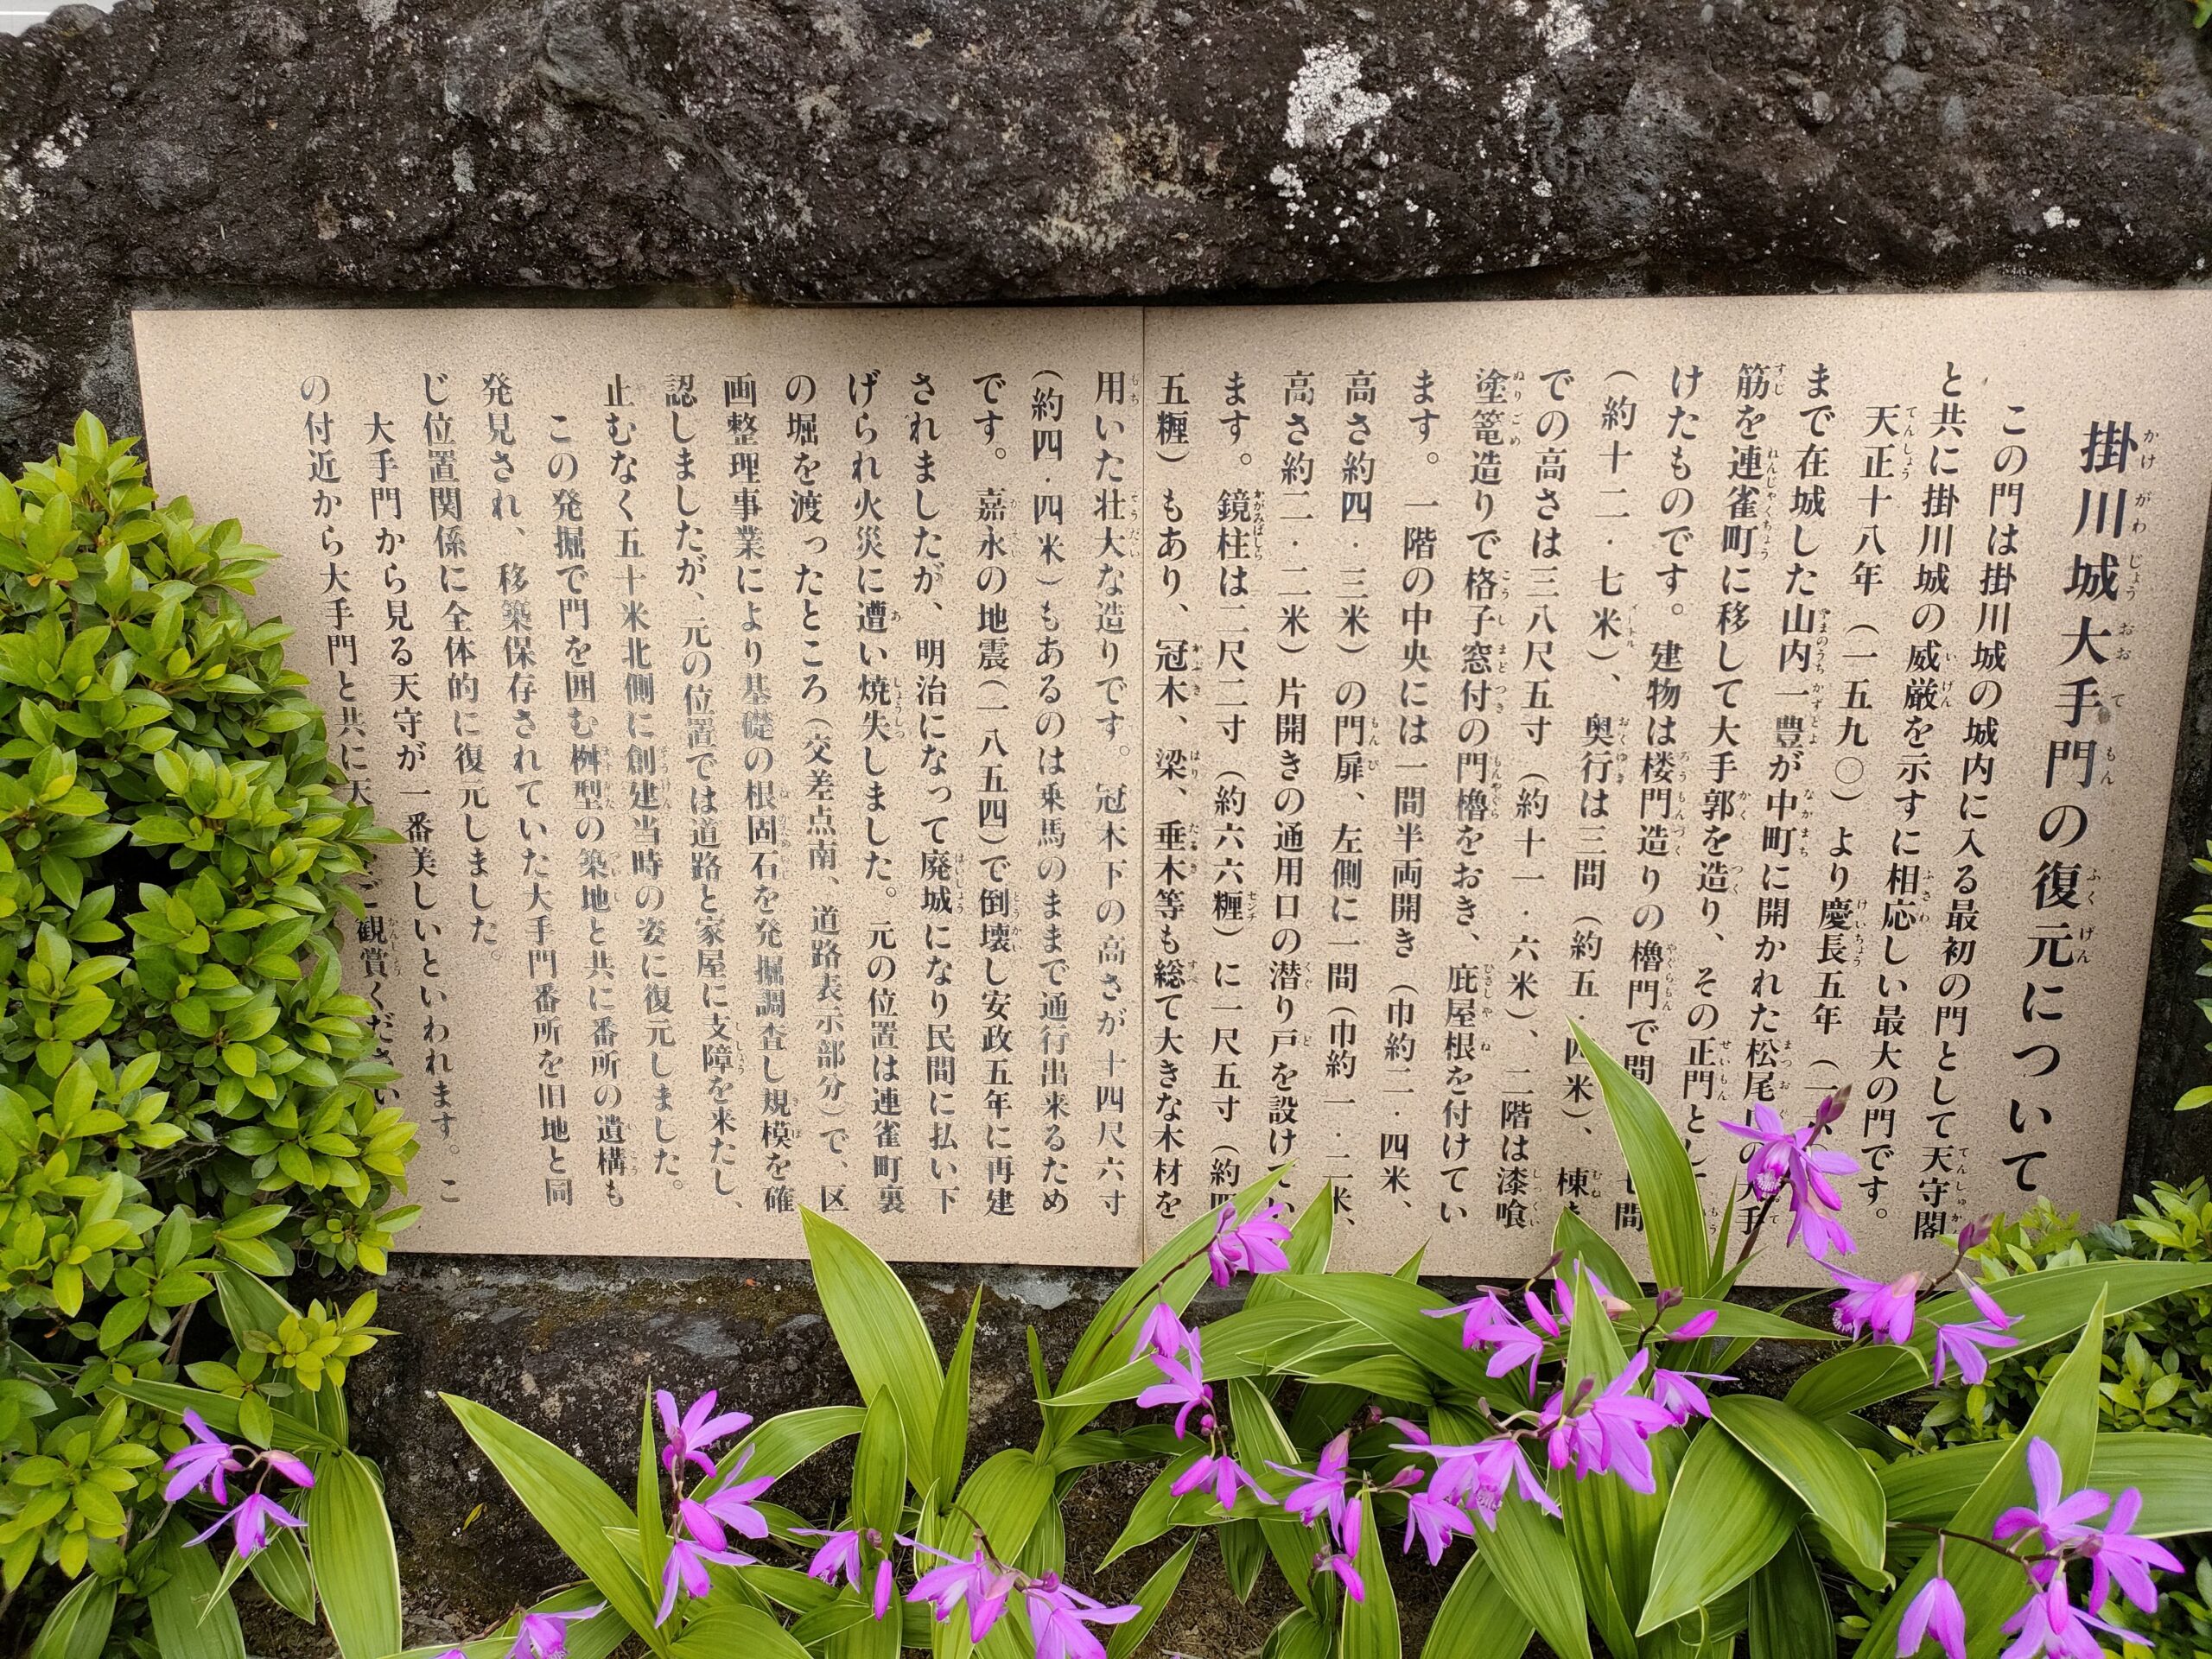 掛川城大手門の復元について
この門は掛川城の城内に入る最初の門として天守閣
と共に掛川城の威厳を示すに相応しい最大の門です。
天正十八年（一五九〇）より慶長五年（一
まで在城した山内一豊が中町に開かれた松尾
筋を連雀町に移して大手郭を造り、その正門とし
けたものです。建物は楼門造りの櫓門で間 七間
（約十二・七米）、奥行は三間（約五・四米）、棟
での高さは三八尺五寸（約十一・六米）、二階は漆喰
塗篭造りで格子窓付の門櫓をおき、庇屋根を付けてい
ます。一階の中央には一間半両開き（巾約二・四米、
高さ約四・三米）の門扉、左側に一間（巾約一・二米、
高さ約二・二米）片開きの通用口の潜り戸を設けてい
ます。鏡柱は二尺二寸（約六六糎）に一尺五寸（約四
五糎）もあり、冠木、梁、垂木等も総て大きな木材を
用いた壮大な造りです。冠木下の高さが十四尺六寸
（約四・四米）もあるのは乗馬のままで通行出来るため
です。嘉永の地震（一八五四）で倒壊し安政五年に再建
されましたが、明治になって廃城になり民間に払い下
げられ火災に遭い焼失しました。元の位置は連雀町裏
の堀を渡ったところ（交差点南、道路表示部分）で、区
画整理事業により基礎の根固石を発掘調査し規模を確
認しましたが、元の位置では道路と家屋に支障を来たし、
止むなく五十米北側に創建当時の姿に復元しました。
この発掘で門を囲む桝型の築地と共に番所の遺構も
発見され、移築保存されていた大手門番所を旧地と同
じ位置関係に全体的に復元しました。
大手門から見る天守が一番美しいといわれます。こ
の付近から大手門と共に天 ご観賞ください